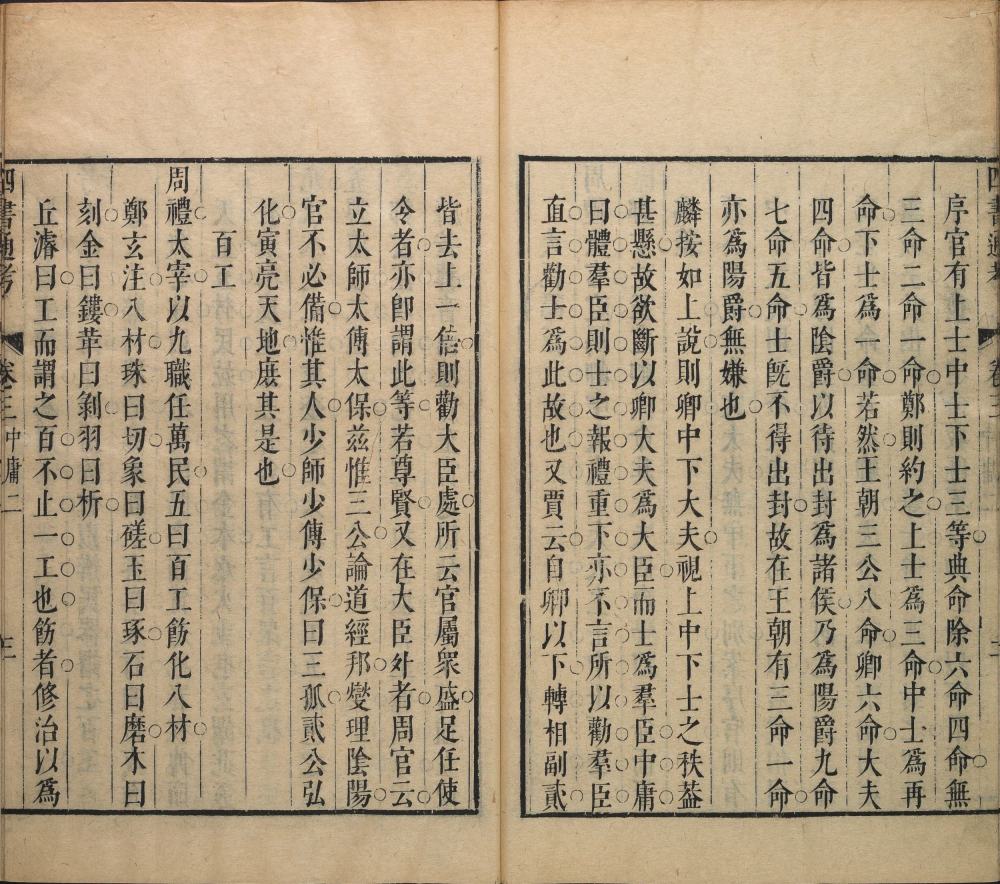 序官有上士中士下士三等典命除六命四命無
三命二命一命鄭則約之上士爲三命中士爲再
命下士爲一命若然王朝三公八命卿六命大夫
四命皆爲陰爵以待出封爲諸侯乃爲陽爵九命
七命五命士旣不得出封故在王朝有三命一命
亦爲陽爵無嫌也
麟按如上說則卿中下大夫視上中下士之秩葢
甚懸故欲斷以卿大夫爲大臣而士爲羣臣中庸
曰體羣臣則士之報禮重下亦不言所以勸羣臣
直言勸士爲此故也又賈云自卿以下轉相副貳
皆去上一倍則勸大臣處所云官屬衆盛足任使
令者亦卽謂此等若尊賢又在大臣外者周官云
立太師太傅太保茲惟三公論道經邦燮理陰陽
官不必備惟其人少師少傅少保曰三孤貳公弘
化寅亮天地庶其是也
百工
周禮太宰以九職任萬民五曰百工飭化八材
鄭玄注八材珠曰切象曰磋玉曰琢石曰磨木曰
刻金曰鏤革曰剝羽曰析
丘濬曰工而謂之百不止一工也飭者修治以爲
四書通考
卷之三中庸二